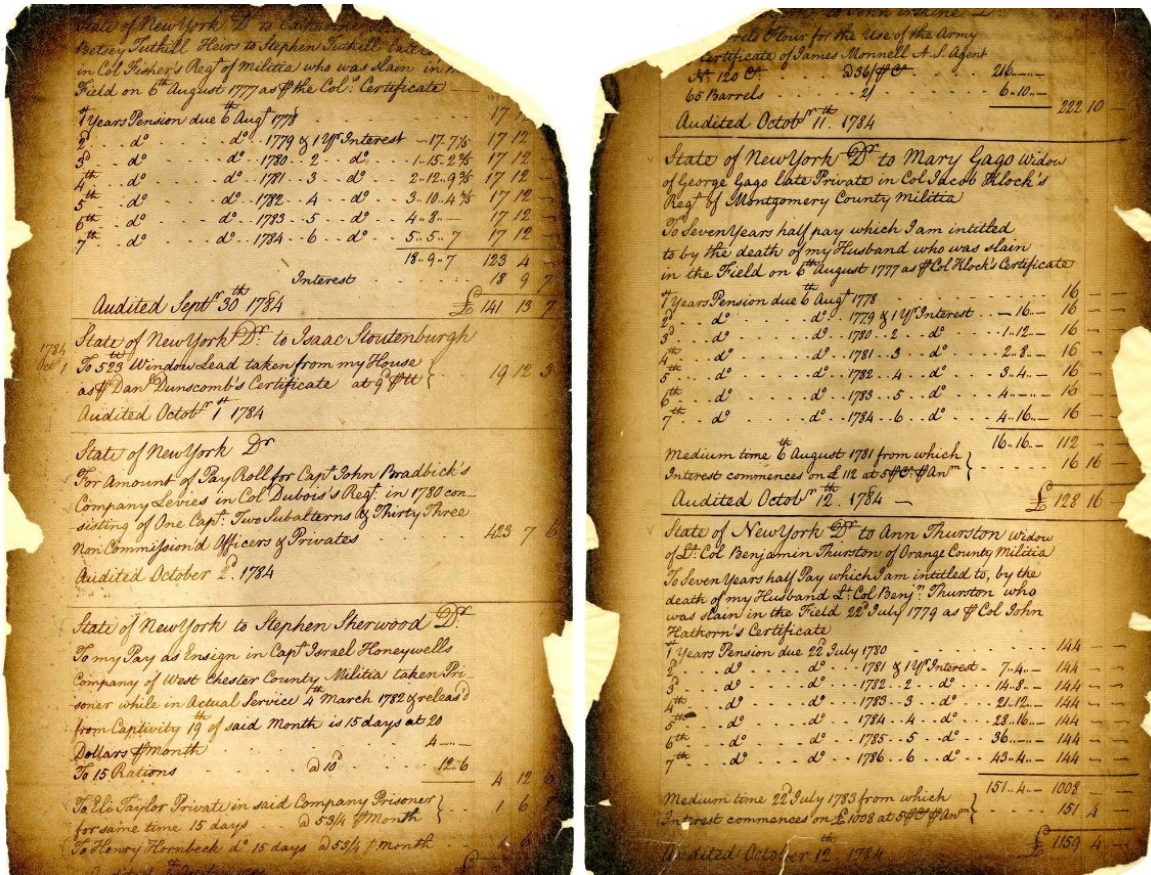 State of New York Dr to
Betsey Tuthill Heirs to Stephen Tuthill late
in Col Fisher's Regt of Militia who was slain in
Field on 6th August 1777 as ⅌ the Colo Certificate —
1st Years Pension due 6th Augt 1778 . . . . 17
2d . . do . . . . do 1779 & 1 Yrs Interest — 17.. 7⅕ 17 12 —
3d . . do . . . . do . 1780 . . 2 . . do . . . 1.. 15.. 2⅖ 17 12 —
4th . . do . . . . do . 1781 . . 3 . . do . . . 2.. 12.. 9⅗ 17 12 —
5th . . do . . . . do . 1782 . . 4 . . do . . . 3.. 10.. 4⅘ 17 12 —
6th . . do . . . . do . 1783 . . 5 . . do . . . 4.. 8.. — 17 12 —
7th . . do . . . . do . 1784 . . 6 . . do . . . 5.. 5.. 7 17 12 —
18.. 9.. 7 123 4 —
Interest . . . . 18 9 7
Audited Septr 30th 1784 £ 141 13 7
1784
Octr 1
State of New York Dr. to Isaac Stoutenburgh
To 523 tt Window Lead taken from my House
as ⅌ Danl Dunscomb's Certificate at 9d ⅌ tt } 19 12 3
Audited Octobr 1st 1784
State of New York Dr
For Amount of Pay Roll for Capt John Bradbick's
Company Levies in Col Dubois's Regt. in 1780 con-
sisting of One Capt. Two Subalterns & Thirty Three
Non Commission'd Officers & Privates . . . . 423 7 6
Audited October 2d. 1784
State of New York to Stephen Sherwood Dr.
To my Pay as Ensign in Capt Israel Honeywells
Company of West Chester County Militia taken Pri-
soner while in Actual Service 4th March 1782 & releas'd
from Captivity 19th of said Month is 15 days at 20
Dollars ⅌ Month . . . . 4 — —
To 15 Rations . . . . @ 10d . . . 12.. 6 4 12 6
To Eli Taylor Private in said Company Prisoner
for same time 15 days . . @ 53/4 ⅌ Month } . . 1 6
To Henry Hornbeck do 15 days @ 53/4 ⅌ month . . 1 6
Flour for the Use of the Army
Certificate of James Monnell A.S. Agent
Nt. 120 Ct . . . . @ 36/ ⅌ Ct . . . 216..—..—
65 Barrels . . . . 2/ . . . . 6.. 10..— 222 10 —
Audited Octobr 11th. 1784
State of New York Dr to Mary Gago Widow
of George Gago late Private in Col Jacob Klock's
Regt of Montgomery County Militia
To Seven Years half pay which I am intitled
to by the death of my Husband who was slain
in the Field on 6th August 1777 as ⅌ Col Klock's Certificate
1st Years Pension due 6th Augt 1778 . . . . 16 — —
2d . . do . . . . do . 1779 & 1 Yrs Interest . . — 16..— 16 — —
3d . . do . . . . do . 1780 . . 2 . . do . . . 1.. 12..— 16 — —
4th . . do . . . . do . 1781 . . 3 . . do . . . 2.. 8..— 16 — —
5th . . do . . . . do . 1782 . . 4 . . do . . . 3.. 4..— 16 — —
6th . . do . . . . do . 1783 . . 5 . . do . . . 4..—..— 16 — —
7th . . do . . . . do . 1784 . . 6 . . do . . . 4.. 16..— 16 — —
16.. 16..— 112 — —
Medium time 6th August 1781 from which
Interest commences on £ 112 at 5 ⅌ Ct. ⅌ Anm } . . 16 16 —
Audited Octobr 12th. 1784 — £ 128 16 —
State of New York Dr to Ann Thurston Widow
of Lt. Col Benjamin Thurston of Orange County Militia
To Seven Years half Pay which I am intitled to, by the
death of my Husband Lt Col Benjn. Thurston who
was slain in the Field 22d July 1779 as ⅌ Col John
Hathorn's Certificate
1st Years Pension due 22d July 1780 . . . . 144 — —
2d . . do . . . . do . 1781 & 1 Yrs Interest . 7.. 4..— 144 — —
3d . . do . . . . do . 1782 . . 2 . . do . . 14.. 8..— 144 — —
4th . . do . . . . do . 1783 . . 3 . . do . . 21.. 12..— 144 — —
5th . . do . . . . do . 1784 . . 4 . . do . . 28.. 16..— 144 — —
6th . . do . . . . do . 1785 . . 5 . . do . . 36..—..— 144 — —
7th . . do . . . . do . 1786 . . 6 . . do . . 43.. 4..— 144 — —
151.. 4..— 1008 — —
Medium time 22d July 1783 from which
Interest commences on £ 1008 at 5 ⅌ Ct ⅌ Anm } . . 151 4 —
Audited October 12th. 1784 £ 1159 4 —